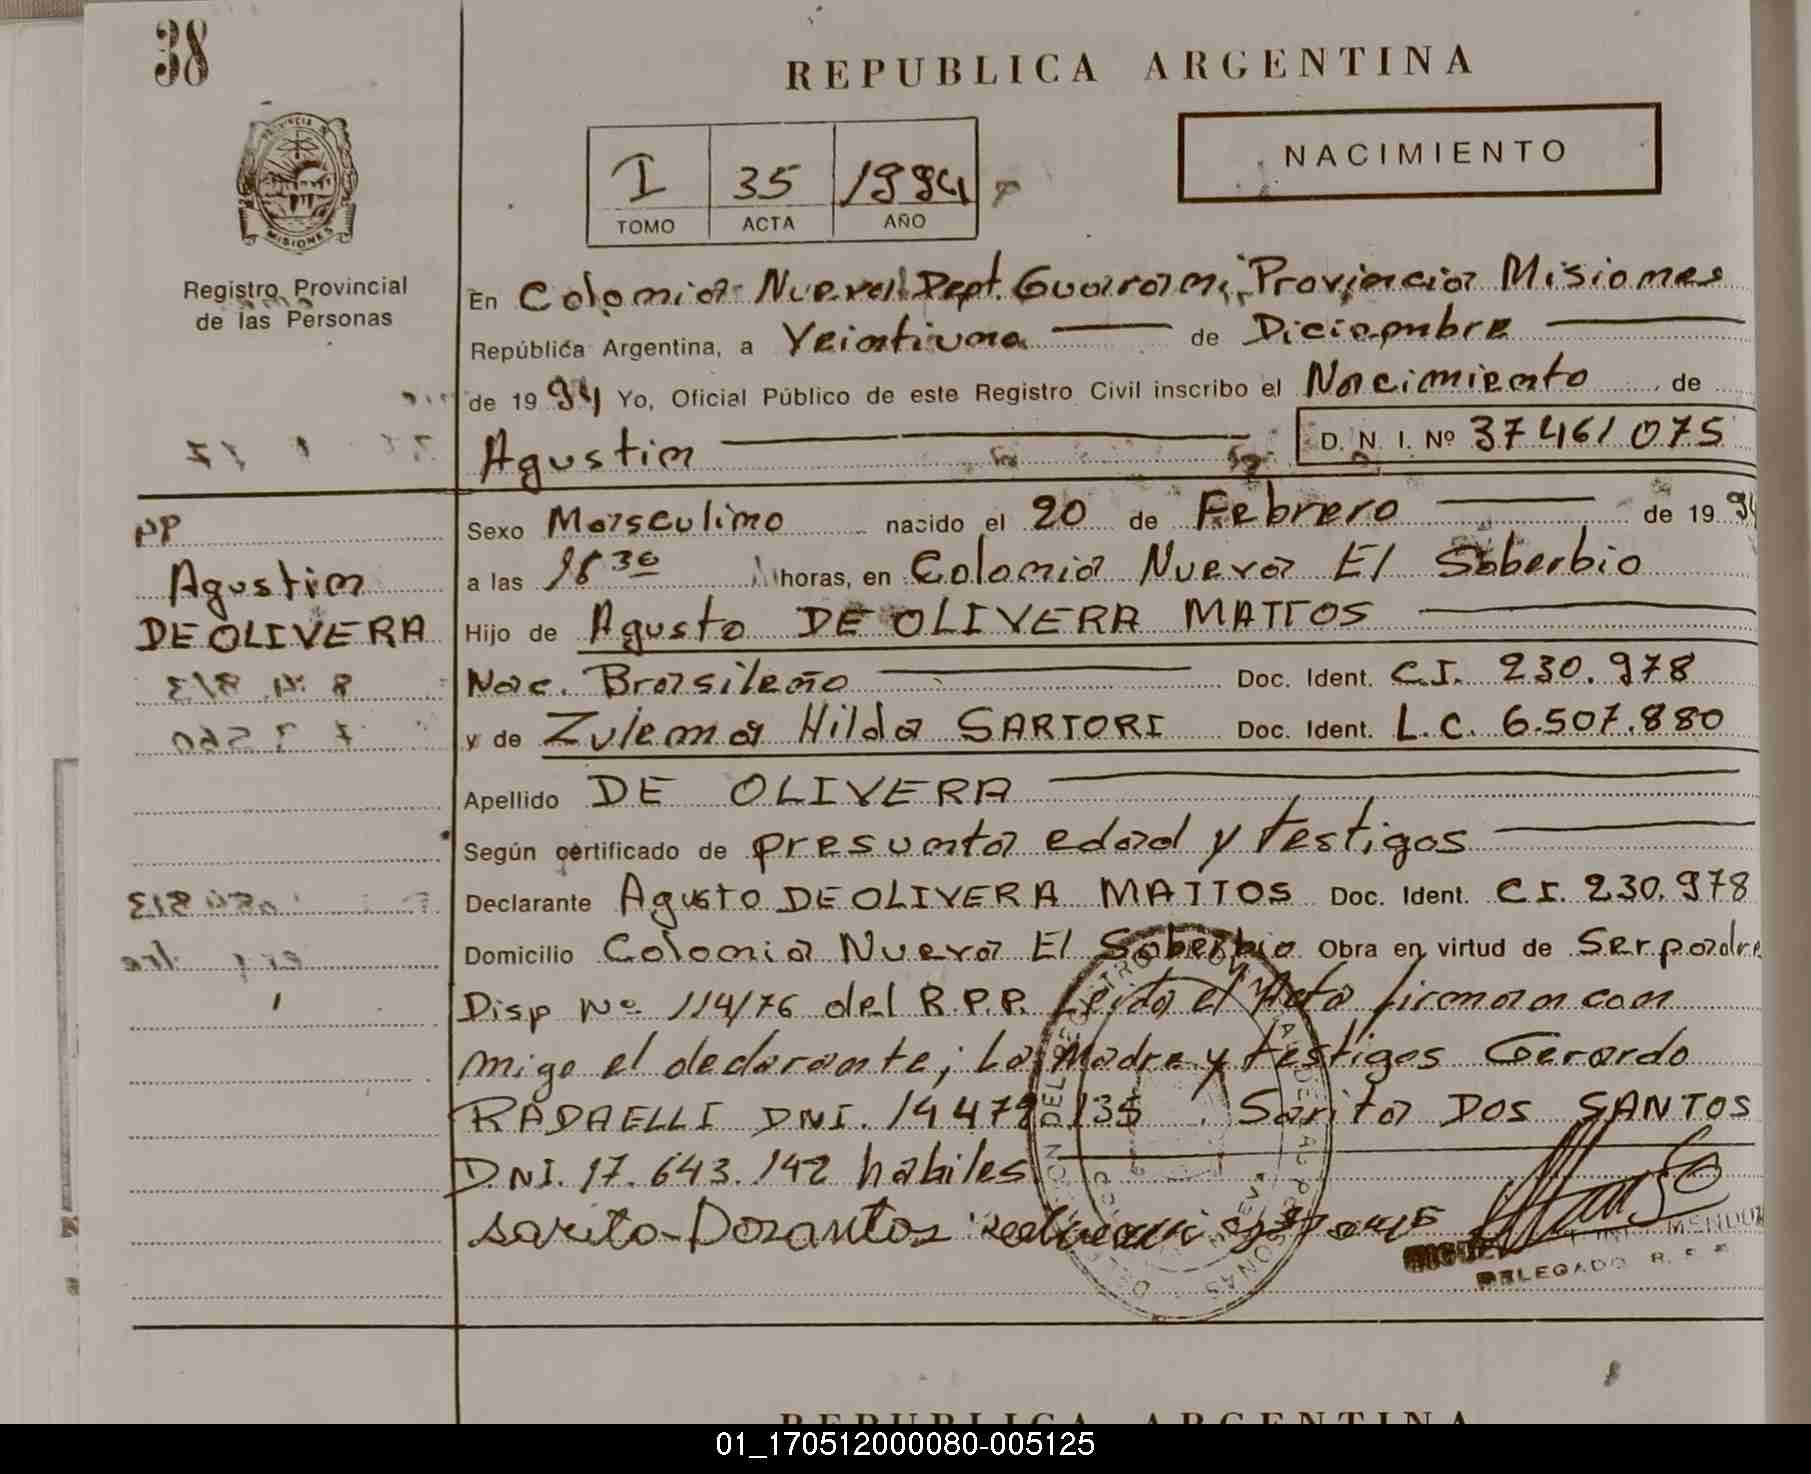 38
REPUBLICA ARGENTINA
NACIMIENTO
I 35 1994
TOMO ACTA AÑO
PROVINCIA
MISIONES
Registro Provincial
de las Personas
En Colonia Nueva Dept. Guarani, Provincia Misiones
República Argentina, a Veintiuno de Diciembre
de 1994 Yo, Oficial Público de este Registro Civil inscribo el Nacimiento de
Agustin D. N. I. Nº 37461075
Sexo Masculino nacido el 20 de Febrero de 19 94
a las 18 30 horas, en Colonia Nueva El Soberbio
Hijo de Agusto DE OLIVERA MATTOS
Nac. Brasileño Doc. Ident. C.I. 230.978
y de Zulema Hilda SARTORI Doc. Ident. L.C. 6.507.880
Apellido DE OLIVERA
Según certificado de presunta edad y testigos
Declarante Agusto DE OLIVERA MATTOS Doc. Ident. C.I. 230.978
Domicilio Colonia Nueva El Soberbio Obra en virtud de Ser padre
Disp Nº 114/76 del R.P.P. Leida el Acta firman con
migo el declarante; La Madre y testigos Gerardo
RADAELLI DNI. 14 479 135 Sarita DOS SANTOS
D.NI. 17.643.142 habiles
sarita Dosantos
MENDOZA
DELEGADO R. P. P.
Agustin
DE OLIVERA
REPUBLICA ARGENTINA
01_170512000080-005125